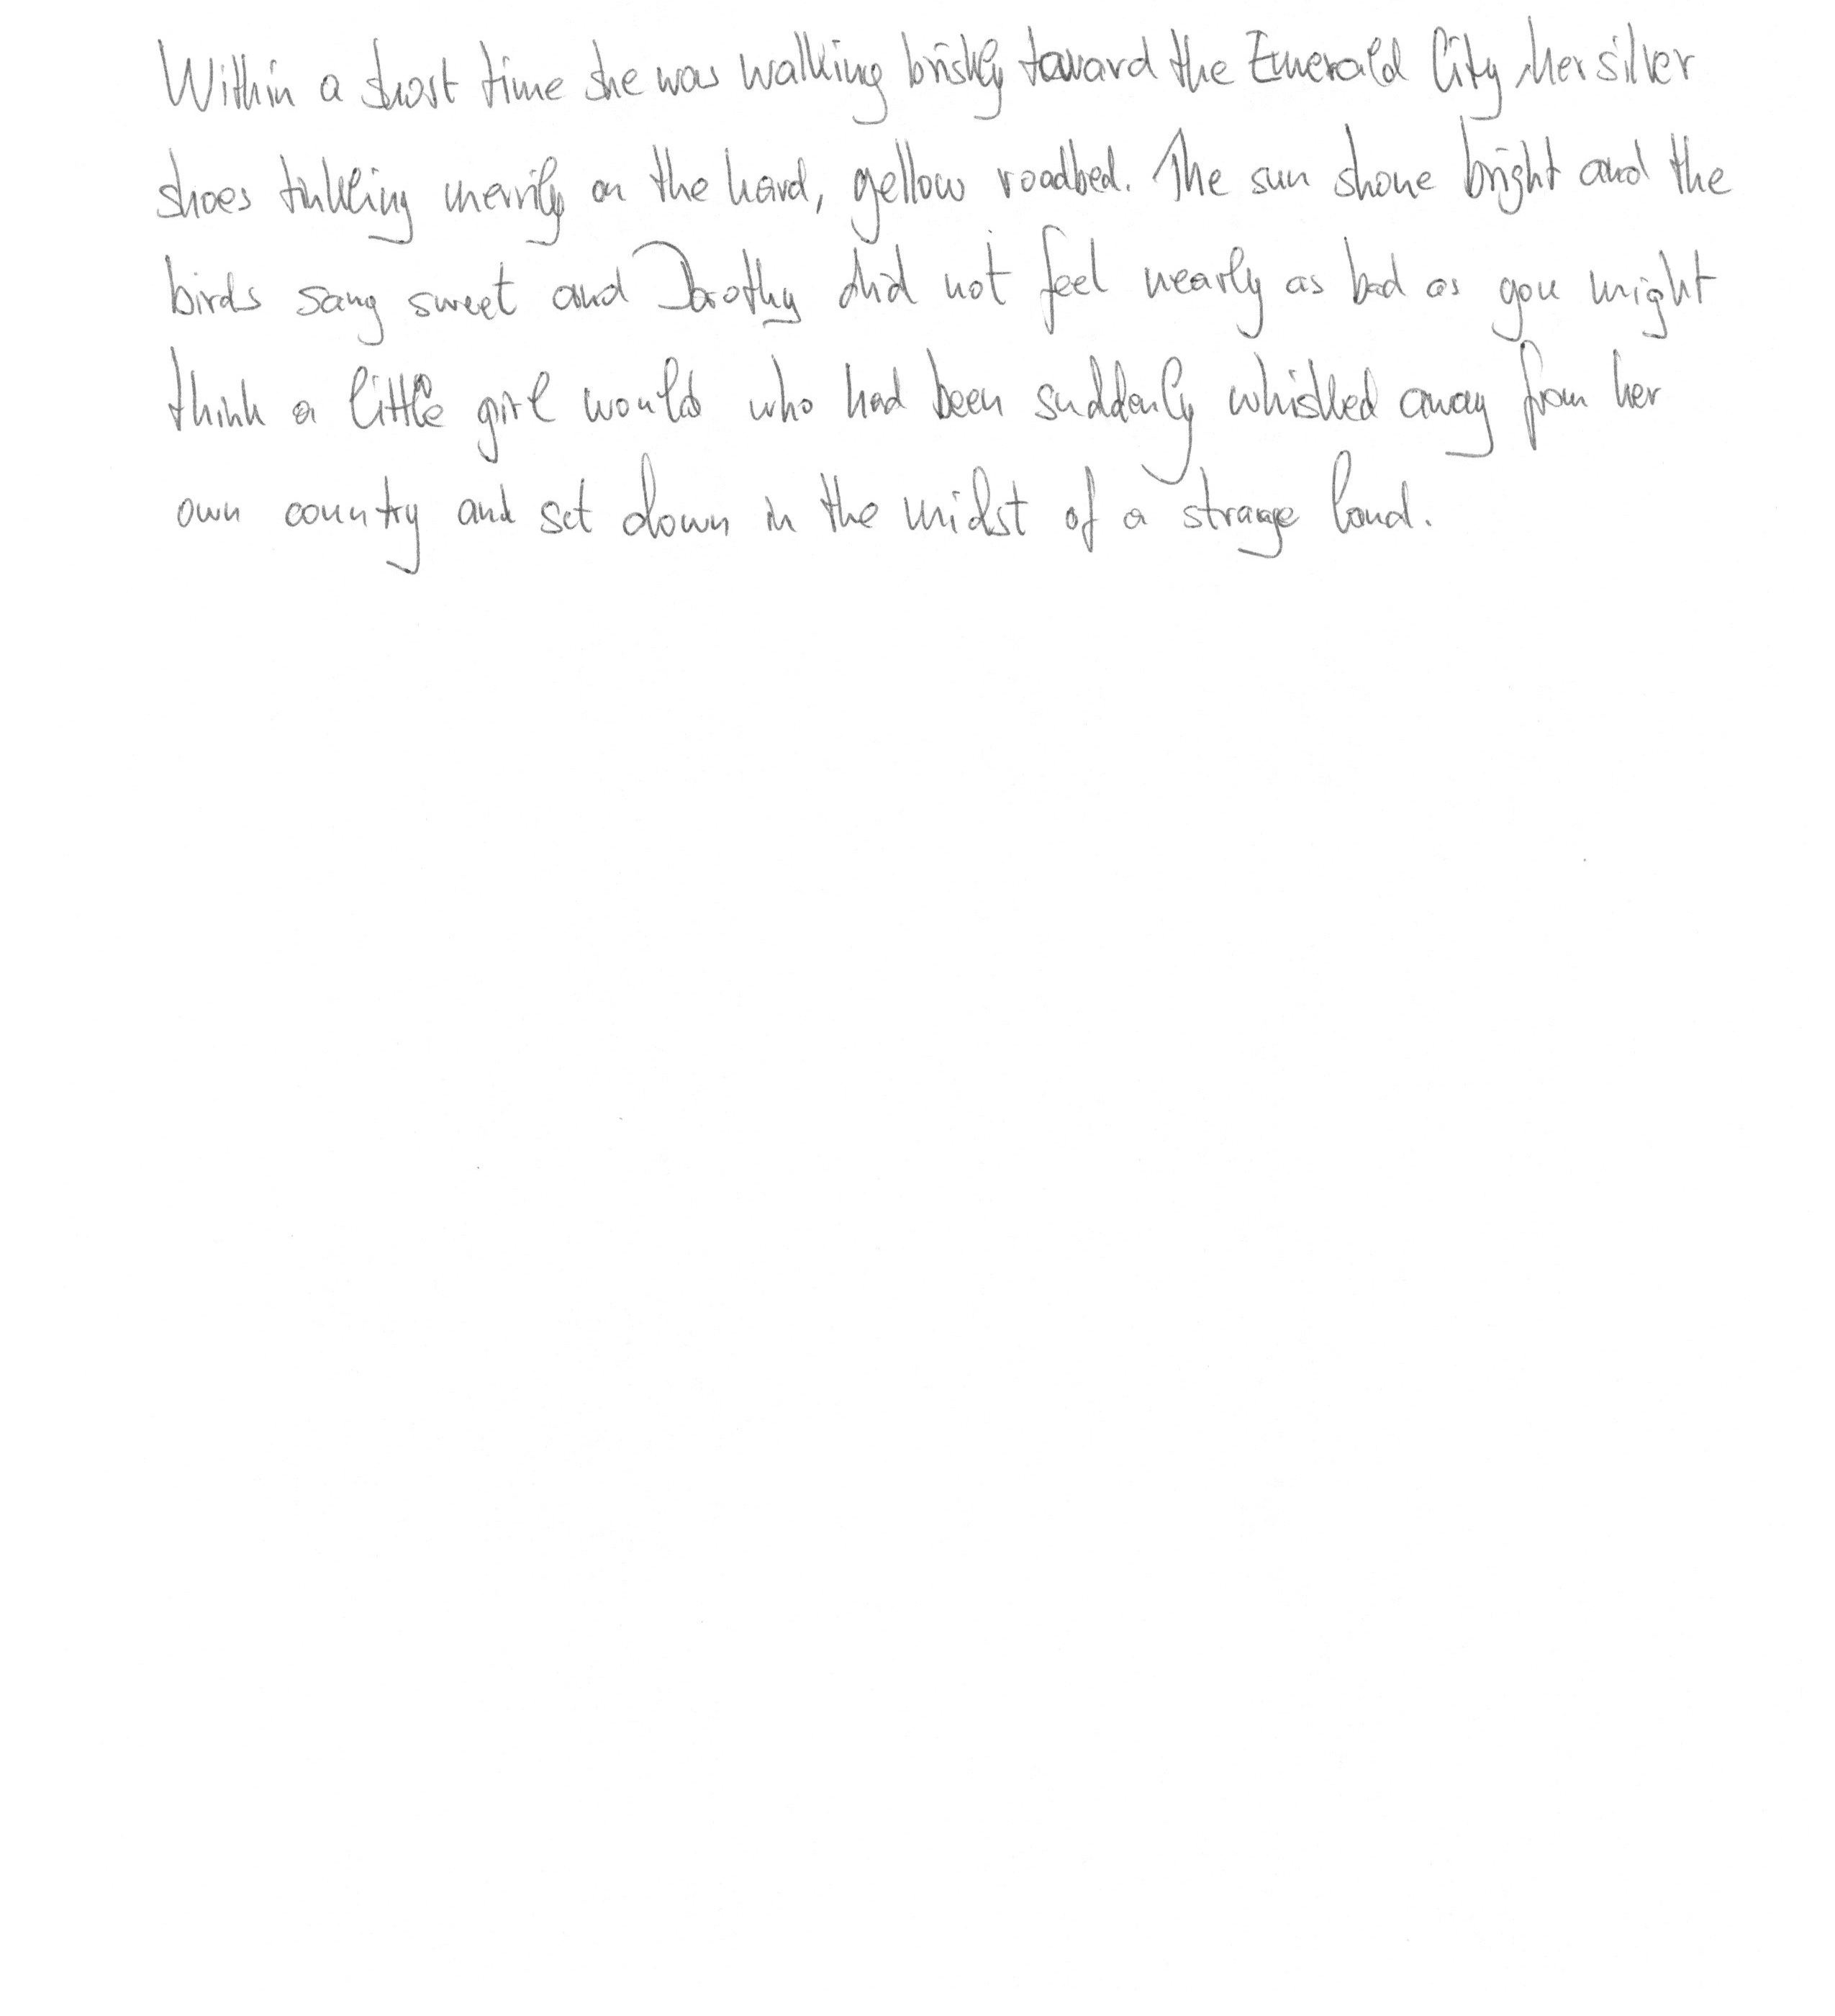 Within a short time she was walking briskly toward the Emerald City, her silver
shoes tinkling merrily on the hard, yellow roadbed. The sun shone bright and the
birds sang sweet and Dorothy did not feel nearly as bad as you might
think a little girl would who had been suddenly whisked away from her
own country and set down in the midst of a strange land.